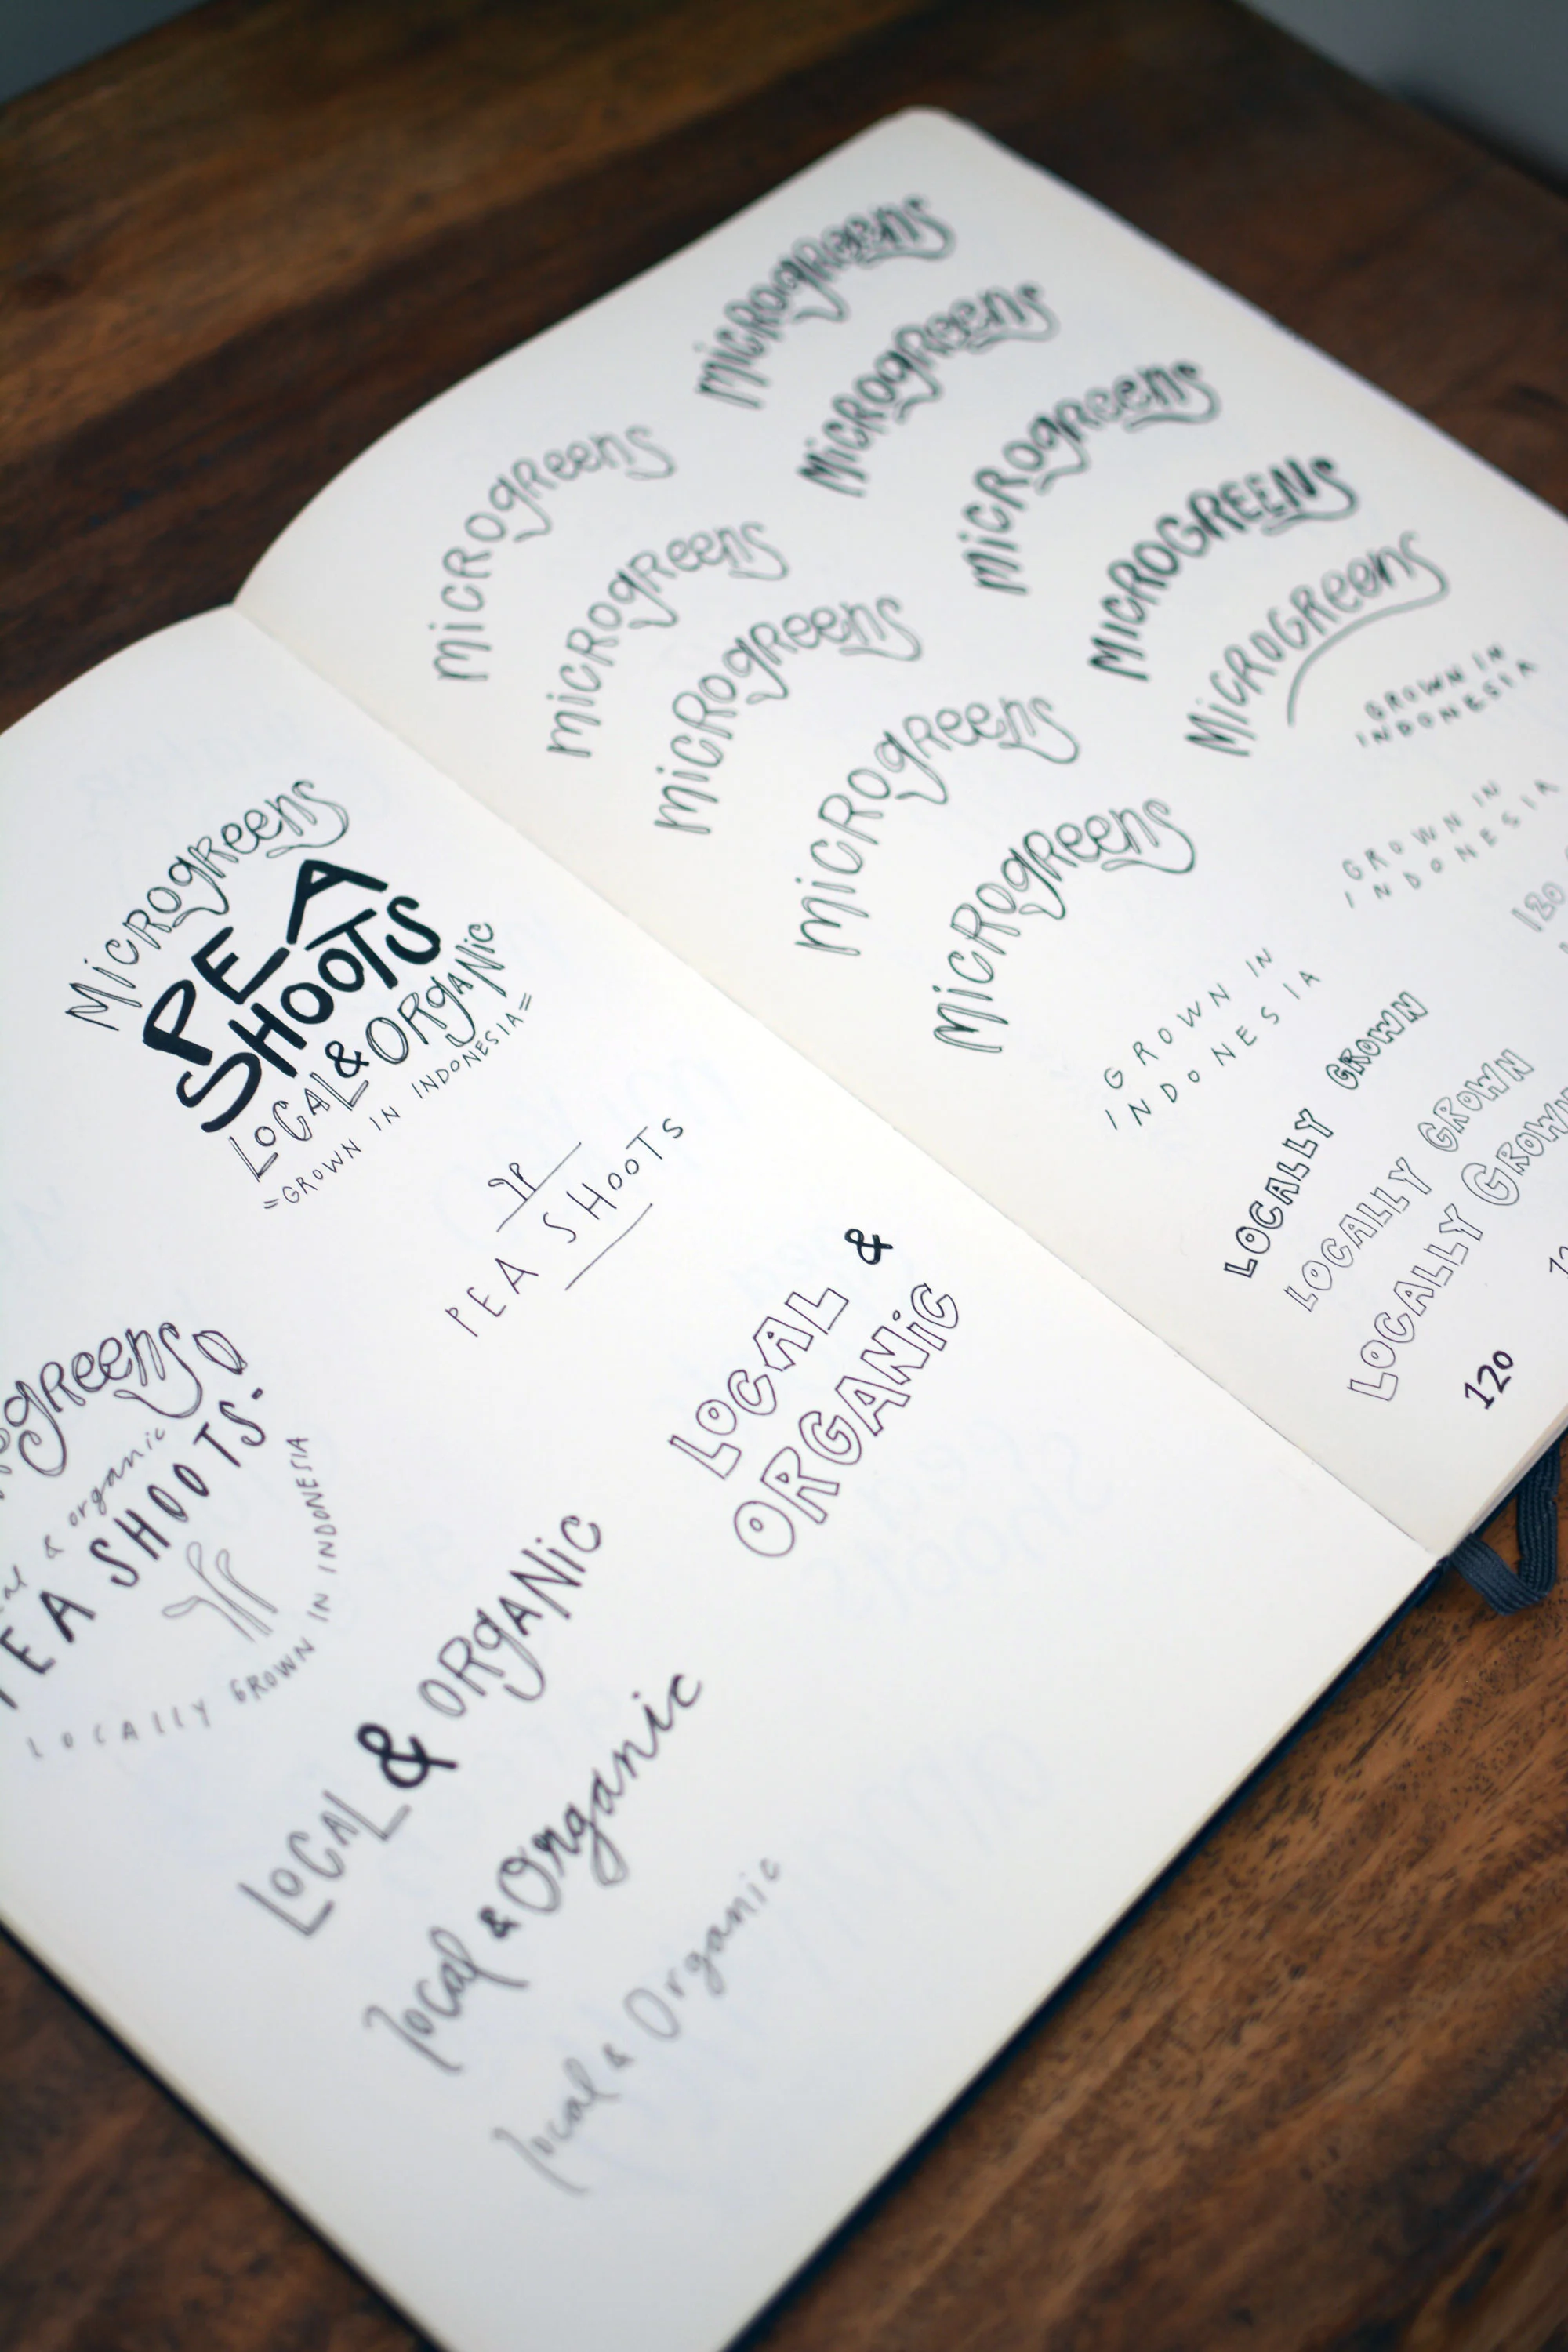 MicROgReens
PEA
SHOOTS
LOCAL & ORgANic
=GROWN IN INDONESIA=
PEA SHOOTS
gReens
& organic
EA SHOOTS
LOCALLY GROWN IN INDONESIA
LOCAL &
ORGANiC
LOCAL & ORgANic
local & Organic
local & Organic
MiCROgReens
MiCROgReens
MiCROgReens
MiCROgReens
MiCROgReens
MiCROgReens
MiCROgReens
MiCROgreens
MICROGREENS
MiCROGReens
GROWN IN
INDONESIA
GROWN IN
INDONESIA
GROWN IN
INDONESIA
120
LOCALLY GROWN
LOCALLY GROWN
LOCALLY GROWN
120